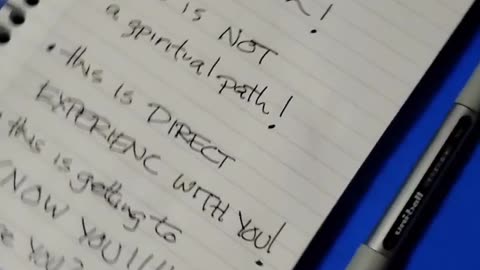 is NOT
a spiritual path!
• this is DIRECT
EXPERIENC WITH YOU!
• this is getting to
KNOW YOU!!!!
YOU?
uniball